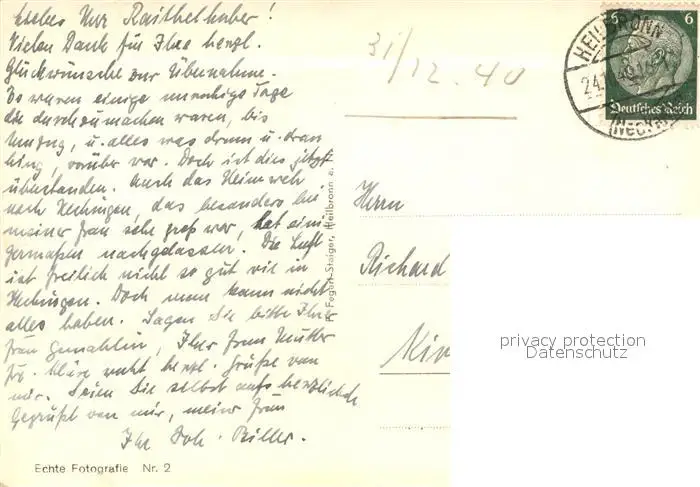 Liebes Herr Raithelhuber!
Vielen Dank für Ihre herzl.
Glückwünsche zur Übernahme.
Es waren einige unruhige Tage
die durchzumachen waren, bis
Umzug, u. alles was drum u. dran
hing, vorüber war. Doch ist dies jetzt
überstanden. Auch das Heimweh
nach Hechingen, das besonders bei
meiner Frau sehr groß war, hat eini
germaßen nachgelassen. Die Luft
ist freilich nicht so gut wie in
Hechingen. Doch man kann nicht
alles haben. Sagen Sie bitte Ihrer
Frau Gemahlin, Ihrer Frau Mutter
Frl. Kläre recht herzl. Grüße von
mir. Seien Sie selbst aufs herzlichste
Gegrüßt von mir, meiner Frau
Ihr Joh. Biller.
Echte Fotografie Nr. 2
Fegert-Staiger, Heilbronn a.
31/12.40
HEILBRONN
24.
(Neckar)
6 6
Deutsches Reich
Herrn
Richard
privacy protection
Datenschutz